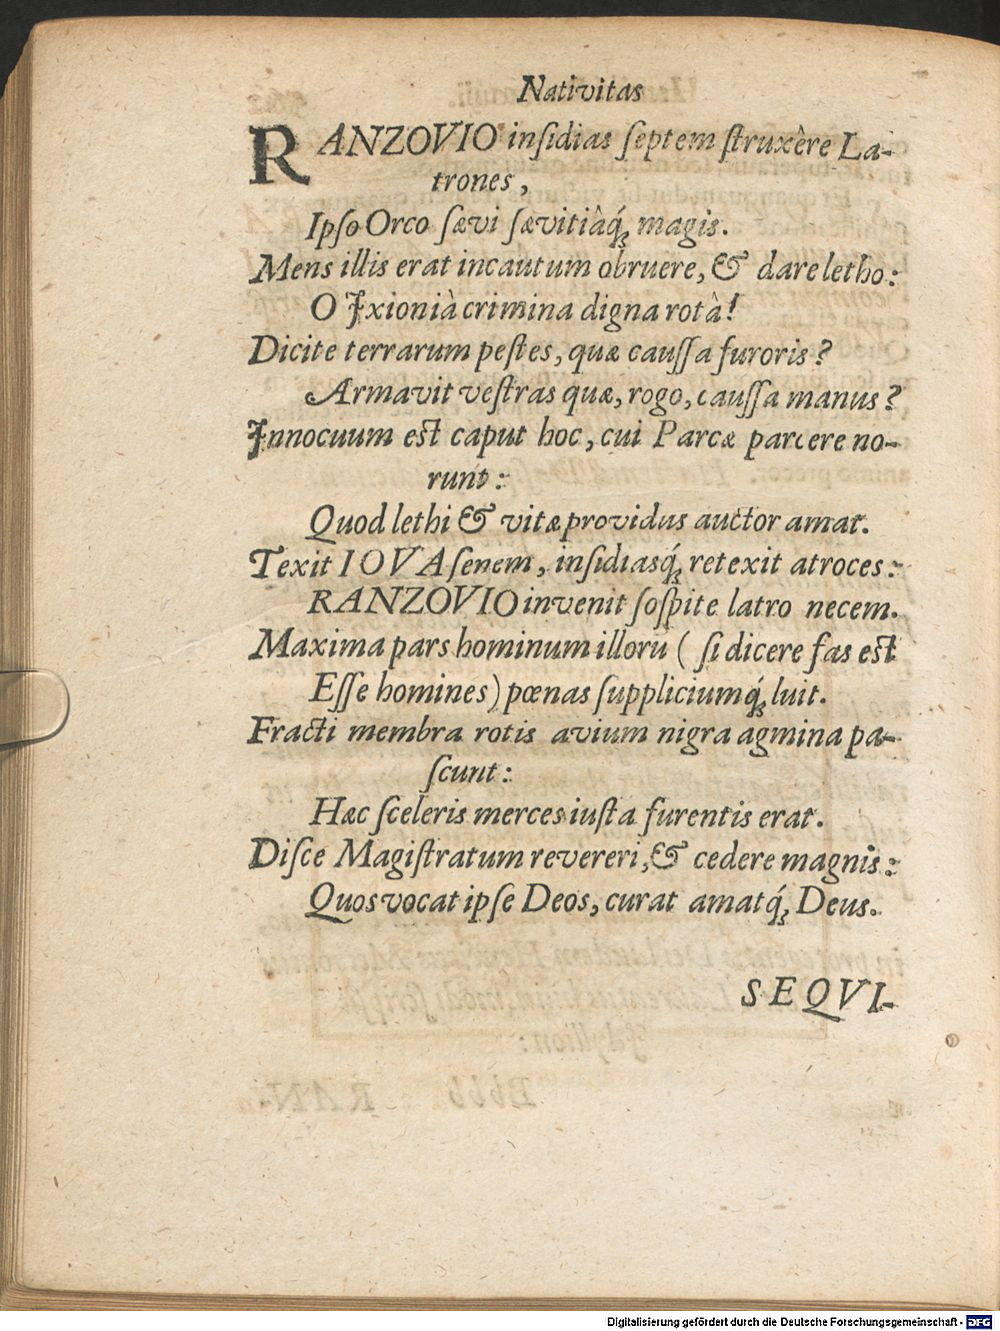 Nativitas
RANZOVIO inſidias ſeptem ſtruxêre La-
trones,
Ipſo Orco ſævi ſævitiâq́ꝫ magis.
Mens illis erat incautum obruere, & dare letho:
O Ixioniâ crimina digna rotâ!
Dicite terrarum peſtes, quæ cauſſa furoris?
Armavit veſtras quæ, rogo, cauſſa manus?
Innocuum est caput hoc, cui Parcæ parcere no-
runt:
Quod lethi & vitæ providus auctor amat.
Texit IOVA ſenem, inſidiasq́ꝫ retexit atroces:
RANZOVIO invenit ſoſpite latro necem.
Maxima pars hominum illorū (ſi dicere fas est
Eſſe homines) pœnas ſuppliciumq́ꝫ luit.
Fracti membra rotis avium nigra agmina pa-
ſcunt:
Hæc ſceleris merces iuſta furentis erat.
Diſce Magiſtratum revereri, & cedere magnis:
Quos vocat ipſe Deos, curat amatq́ꝫ Deus.
SEQVI-
Digitalisierung gefördert durch die Deutsche Forschungsgemeinschaft - DFG